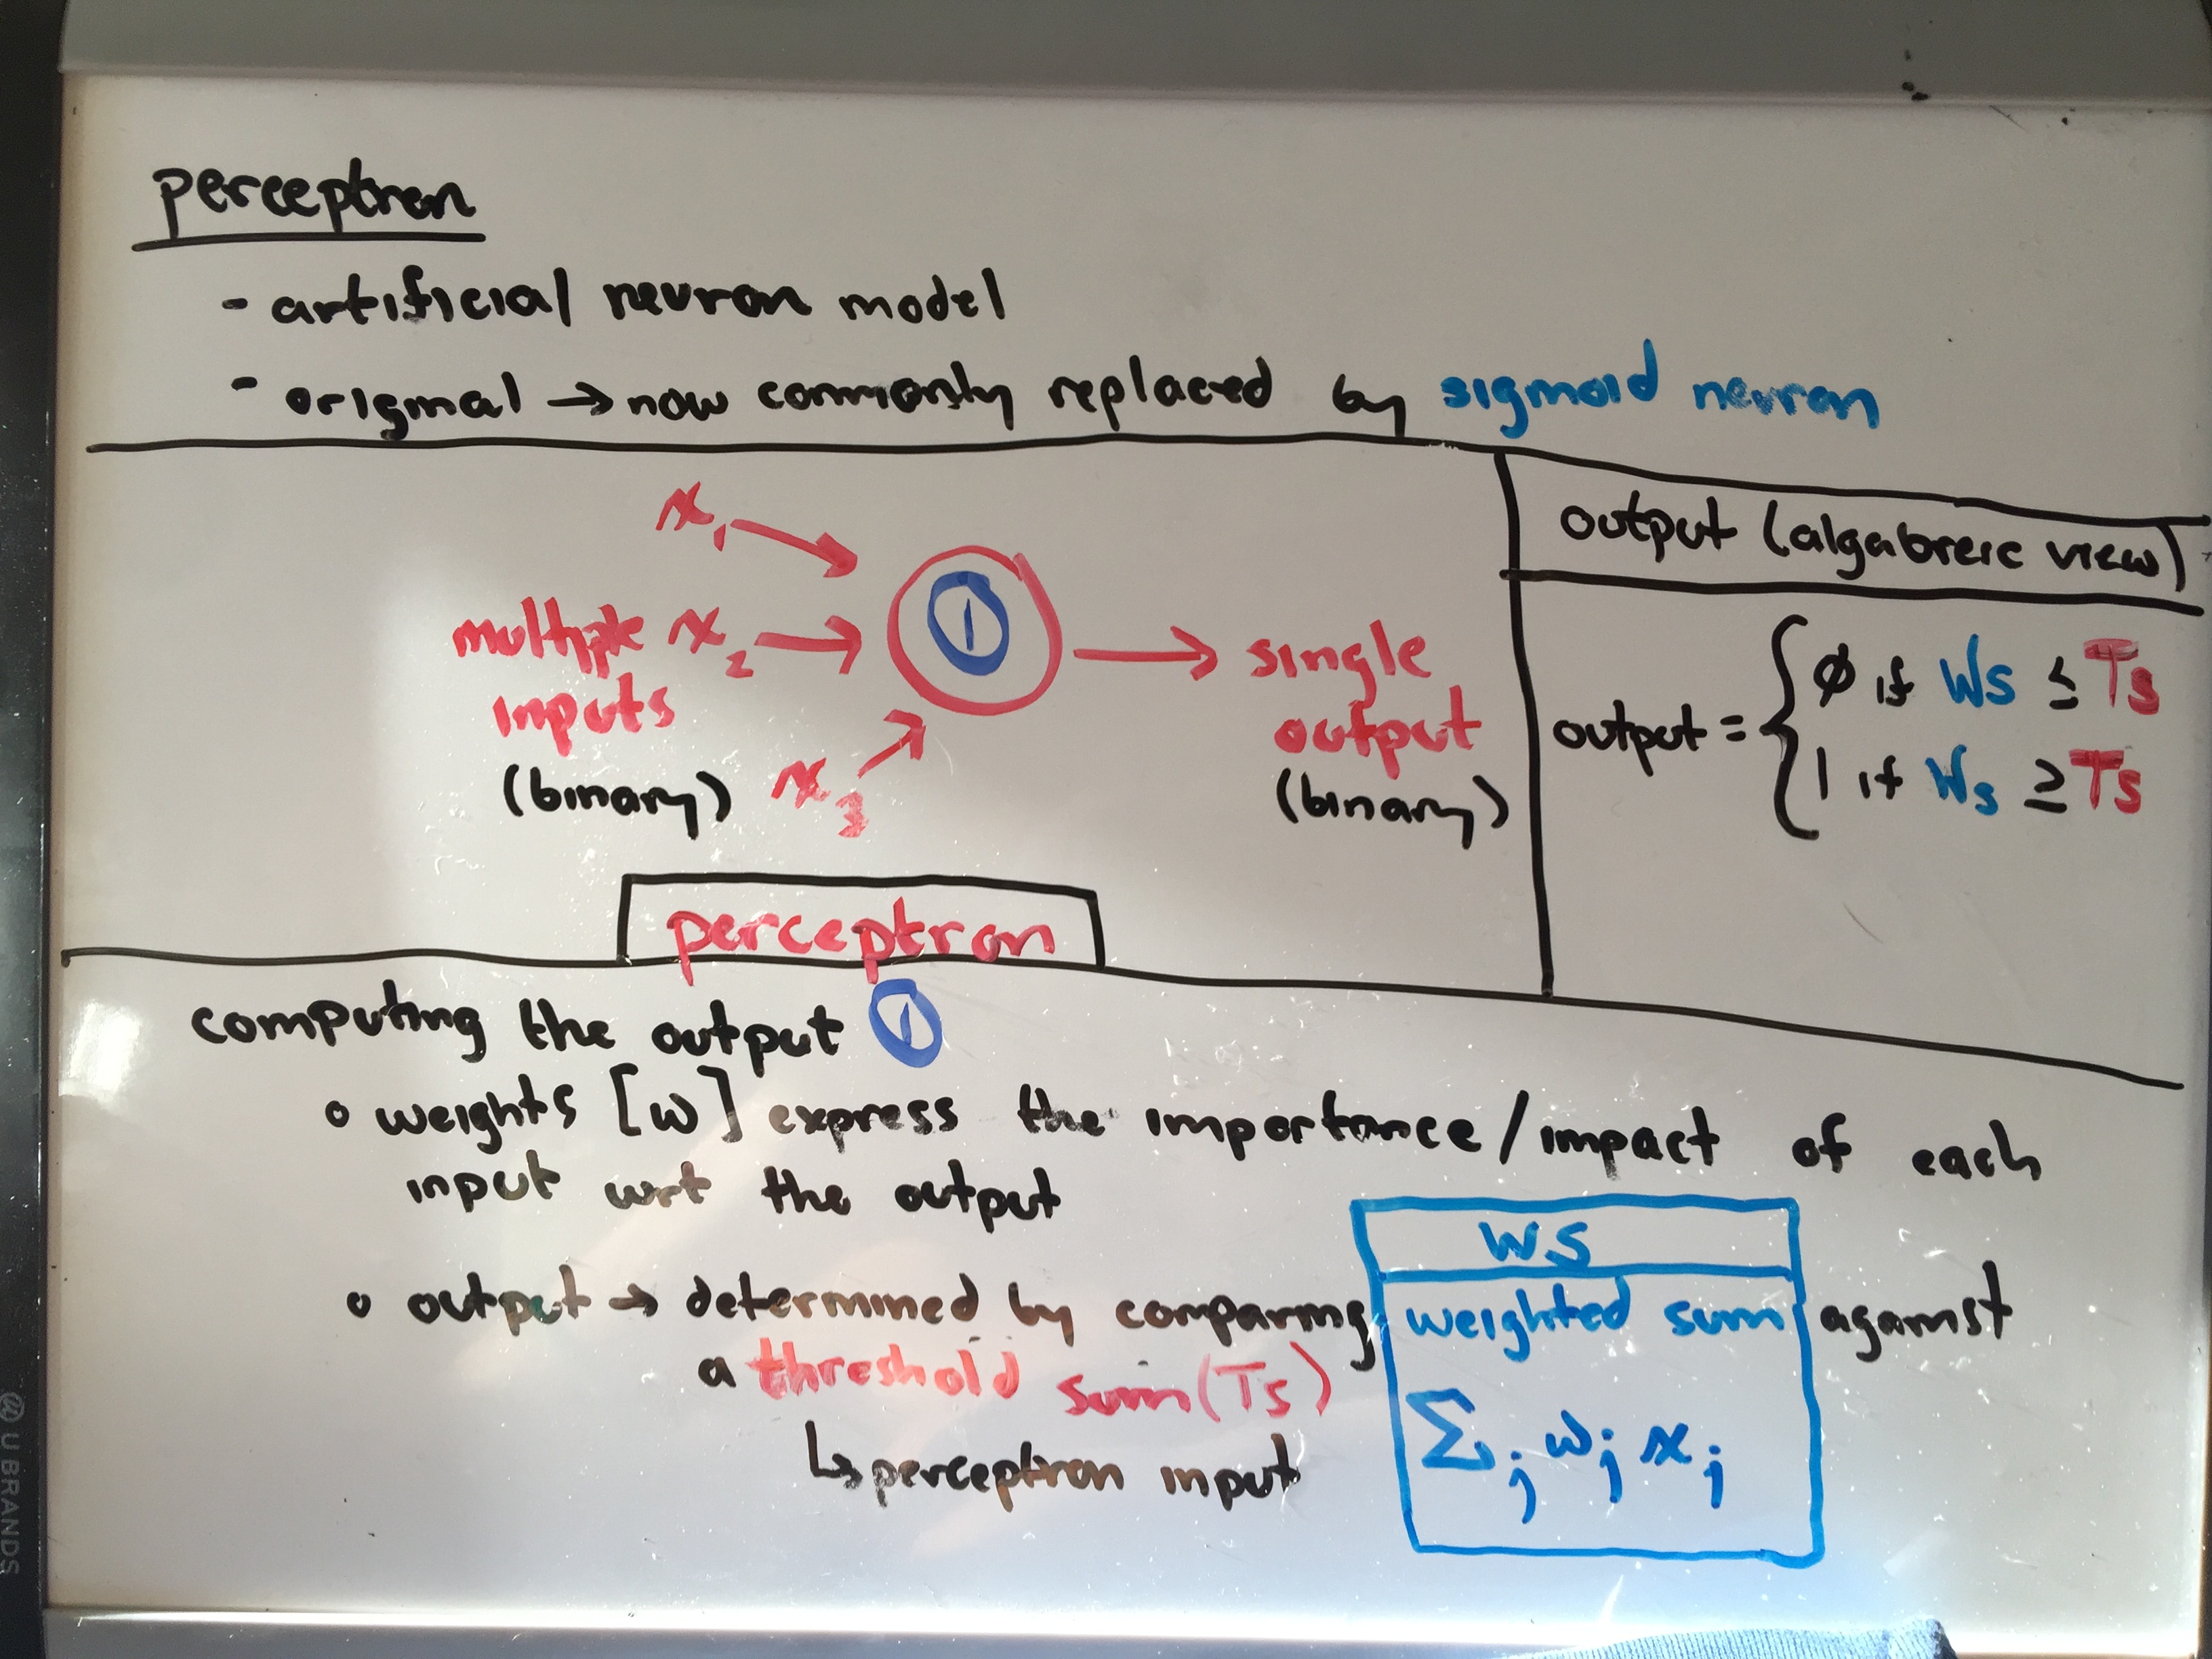 perceptron
- artificial neuron model
- original → now commonly replaced by sigmoid neuron
x₁
multiple x₂
inputs
(binary) x₃
①
single
output
(binary)
perceptron
output (algabreic view)
output = { ∅ if Ws ≤ Ts
1 if Ws ≥ Ts
computing the output ①
o weights [w] express the importance/impact of each
input wrt the output
o output → determined by comparing weighted sum against
a threshold sum (Ts)
↳ perceptron input
WS
Σj wj xj
U BRANDS